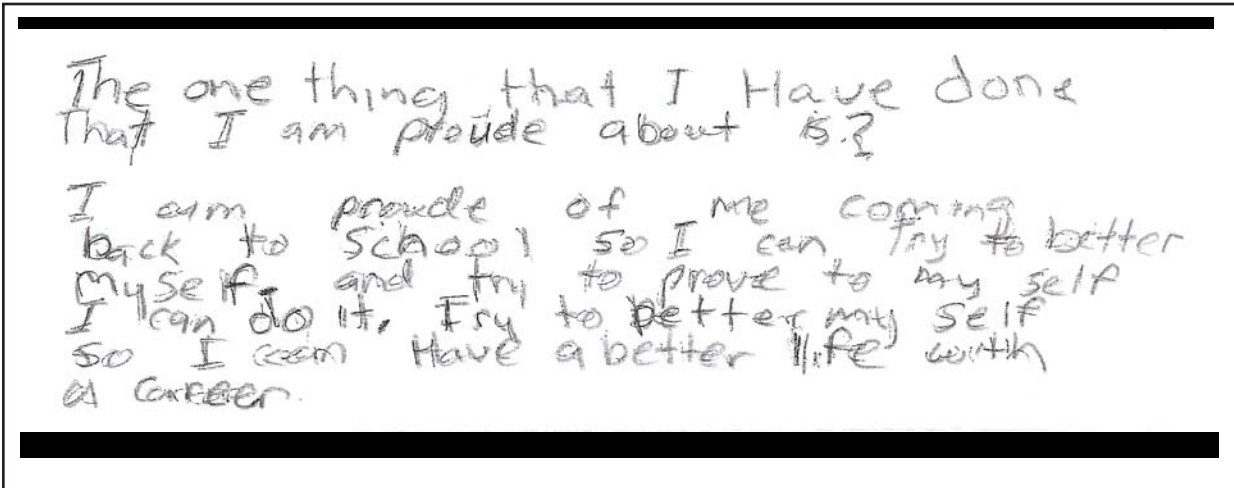 The one thing that I Have done
That I am proude about is?
I am proude of me coming
back to School so I can Try to better
myself and try to prove to my self
I can do it. Try to better my self
so I can Have a better life with
a career.